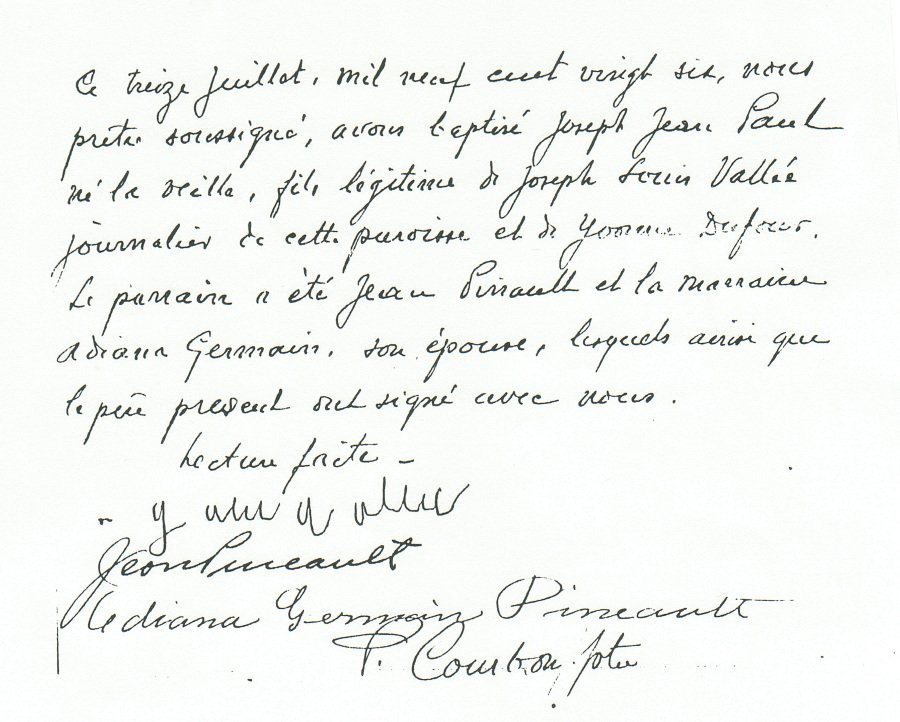 Ce treize Juillet, mil neuf cent vingt six, nous
prêtre soussigné, avons baptisé Joseph Jean Paul
né la veille, fils légitime de Joseph Louis Vallée
journalier de cette paroisse et de Yvonne Dufour.
Le parrain a été Jean Pinault et la marraine
Adiana Germain, son épouse, lesquels ainsi que
le père present ont signé avec nous.
Lecture faite -
Jean Pineault
Lediana Germain Pineault
P. Courbon, ptre